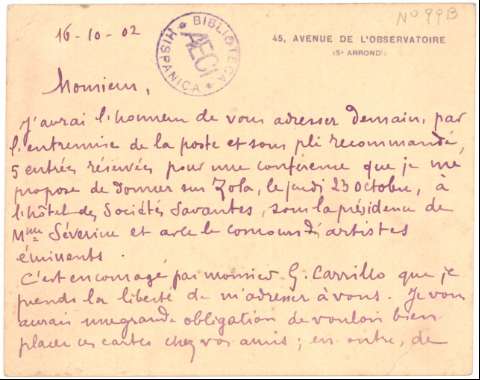 Nº 99B
16-10-02
BIBLIOTECA HISPANICA
AECI
45, AVENUE DE L'OBSERVATOIRE
(5e ARRONDt)
Monsieur,
J'aurai l'honneur de vous adresser demain, par
l'entremise de la poste et sous pli recommandé,
5 entrées réservées pour une conférence que je me
propose de donner sur Zola, le jeudi 23 Octobre, à
l'hôtel des Sociétés Savantes, sous la présidence de
Mme Séverine et avec le concours d'artistes
éminents.
C'est encouragé par monsieur G. Carrillo que je
prends la liberté de m'adresser à vous. Je vous
aurais une grande obligation de vouloir bien
placer ces cartes chez vos amis; en outre, de